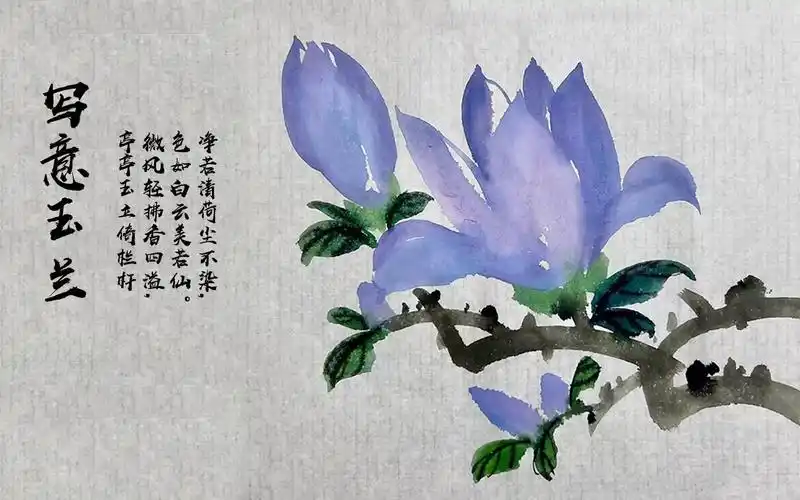 写意玉兰
净若清荷尘不染，
色如白云美若仙。
微风轻拂香四溢，
亭亭玉立倚栏杆